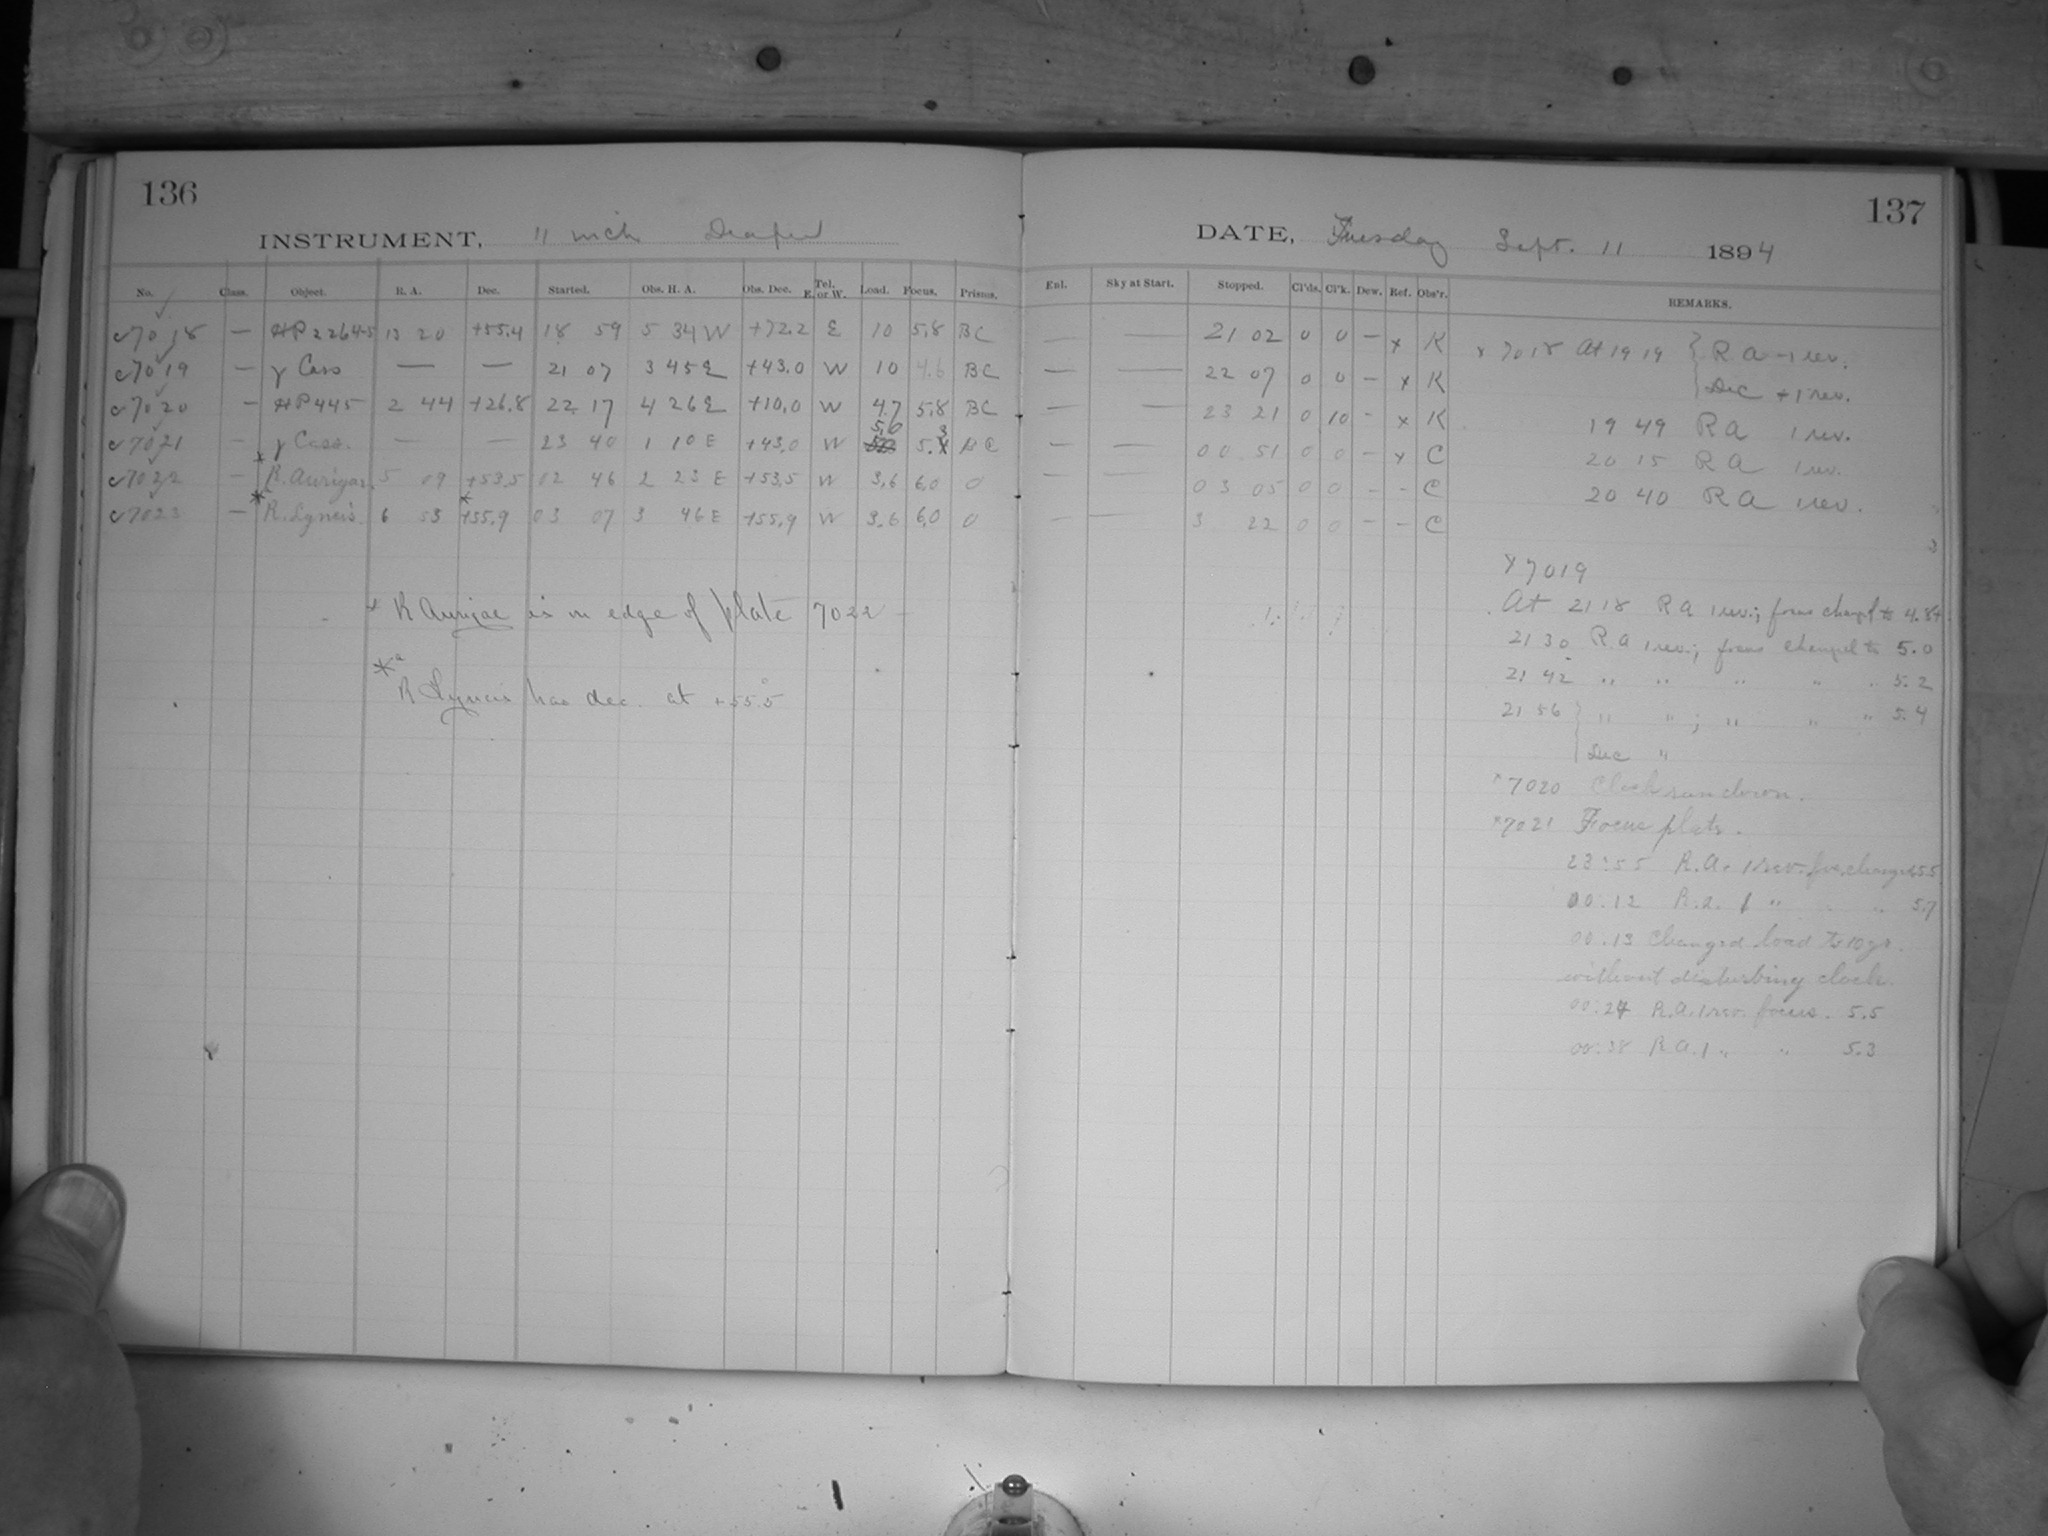 136
INSTRUMENT, 11 inch Draper
No. Class. Object. R. A. Dec. Started. Obs. H. A. Obs. Dec. Tel. E. or W. Load. Focus. Prisms.
c 7018 — AP 22645 13 20 +55.4 18 59 5 34 W +72.2 E 10 5.8 BC
c 7019 — γ Cass — — 21 07 3 45 E +43.0 W 10 4.6 BC
c 7020 — AP 445 2 44 +26.8 22 17 4 26 E +10.0 W 4.7 5.8 BC
c 7021 — γ Cass. — — 23 40 1 10 E +43.0 W 5.6 5.3 BC
c 7022 — * R. Aurigae 5 09 +53.5 02 46 2 23 E +53.5 W 3.6 6.0 0
c 7023 — * R. Lyncis 6 53 * +55.9 03 07 3 46 E +55.9 W 3.6 6.0 0
* R Aurigae is on edge of plate 7022 —
* R Lyncis has dec. at +55°.5
137
DATE, Tuesday Sept. 11 1894
Enl. Sky at Start. Stopped. Cl'ds. Cl'k. Dew. Ref. Obs'r. REMARKS.
— — 21 02 0 0 – x K
— — 22 07 0 0 – x K
— — 23 21 0 10 – x K
— — 00 51 0 0 – x C
— — 03 05 0 0 – – C
— — 3 22 0 0 – – C
x 7018 At 19 19 { R a –1 rev.
Dec +1 rev.
19 49 R a 1 rev.
20 15 R a 1 rev.
20 40 R a 1 rev.
x 7019
At 21 18 R a 1 rev.; focus chang'd to 4.8+
21 30 R.a 1 rev.; focus changed to 5.0
21 42 " " " " " 5.2
21 56 } " " ; " " " 5.4
Dec "
x 7020 Clock run down.
x 7021 Focus plate.
23:55 R.A. 1 rev. foc. change 5.5
00.12 R.a. 1 " " 5.7
00.13 Changed load to 10 gr.
without disturbing clock.
00.24 R.a. 1 rev. focus. 5.5
00:38 R.A. 1 " " 5.3